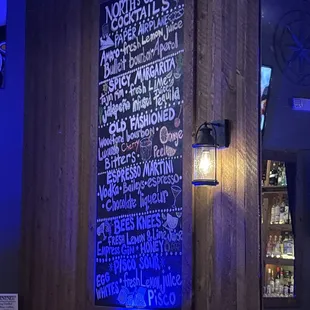 NORTHS
COCKTAILS
PAPER AIRPLANE
fresh Lemon Juice
Bulleit bourbon Aperol
SPICY MARGARITA
fresh Lime
Jalapeño Tequila
OLD FASHIONED
Woodford bourbon Orange
Luxardo Cherry
Bitters
ESPRESSO MARTINI
Vodka Baileys espresso
Chocolate liqueur
BEES KNEES
FRESH Lemon & Lime
Empress Gin HONEY
PISCO SOUR
EGG FRESH Lemon juice
WHITES PISCO